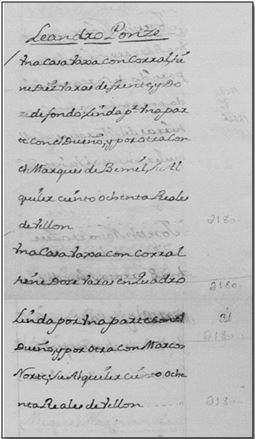 Leandro Ponze
Una Casa Vaxa con Corral, tie
ne Diez Varas de frente, y Do
ze de fondo, Linda pr. Una par
te con el Dueño, y por otra Con
el Marques de Bemel, su Al
quiler ciento ochenta Reales
de Vellon 2180..
Una Casa Vaxa con Corral
tiene Doze Varas en quadro
2180..
Linda por Una parte con el
Dueño, y por otra con Marcos
Norte, su Alquiler ciento oche
nta Reales de Vellon 2180..